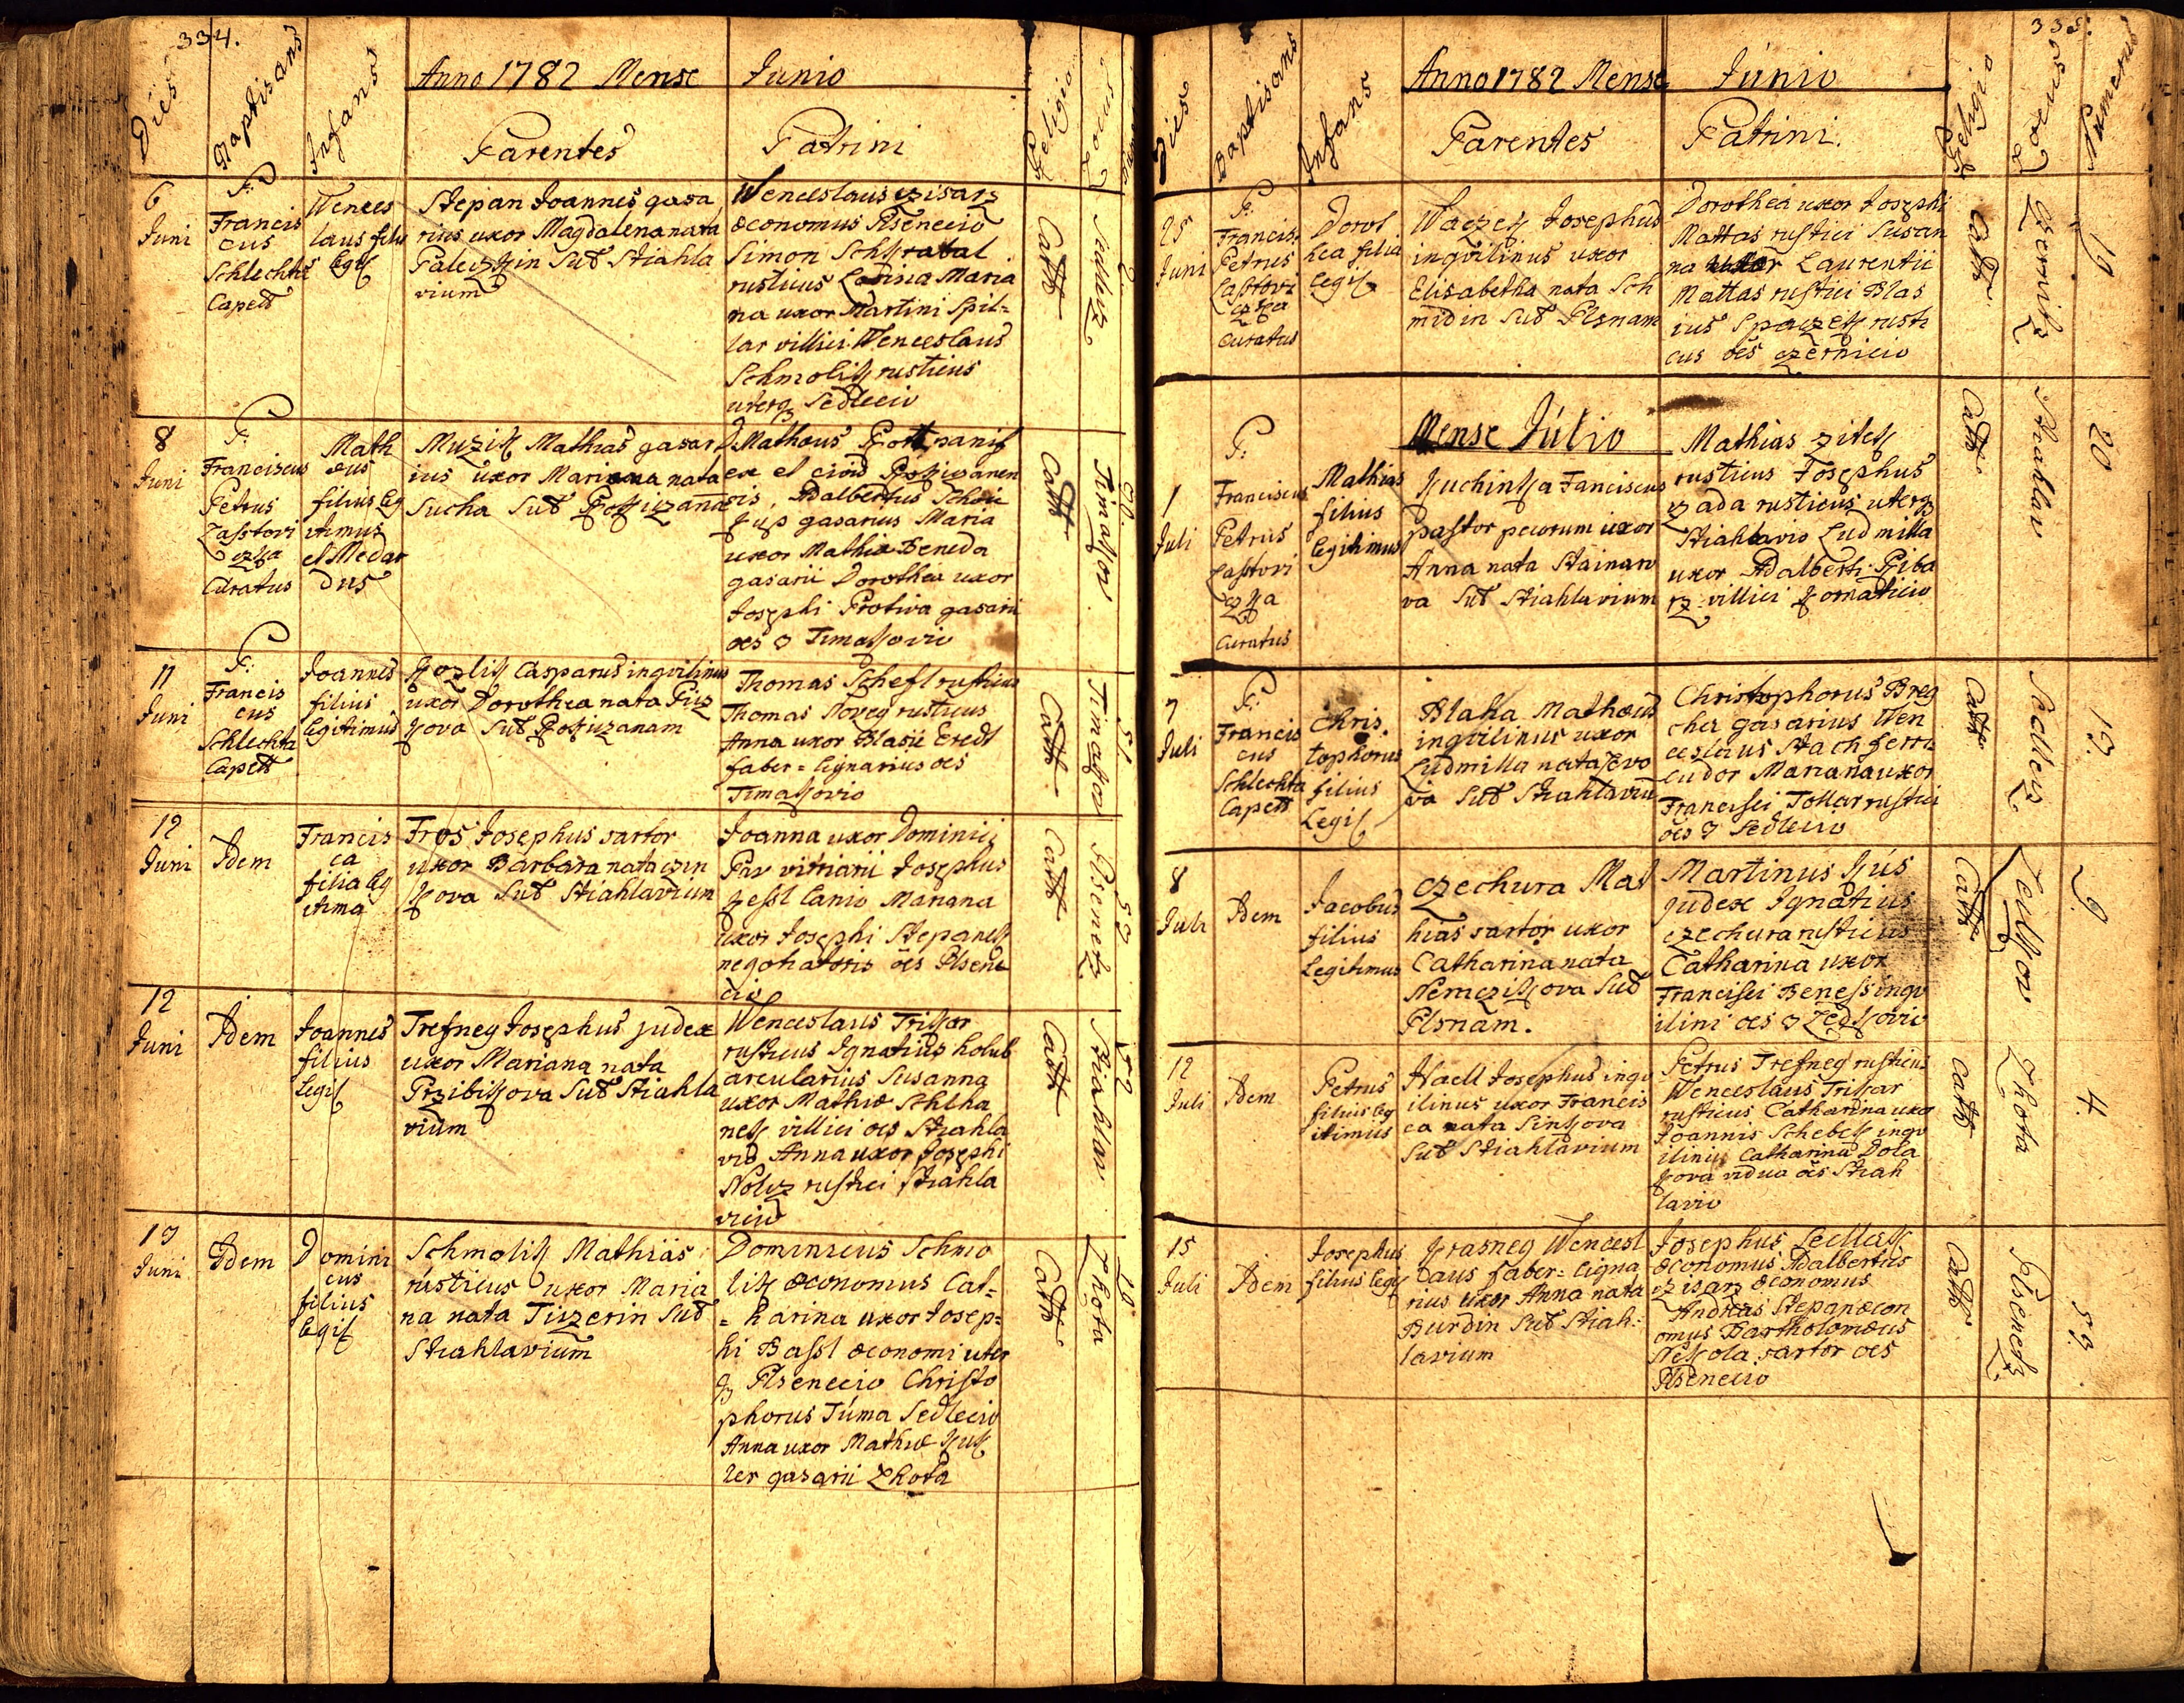 334.
Dies
Baptisans
Infans
Anno 1782 Mense Junio
Parentes
Patrini
Religio
Locus
6
Juni
P:
Francis
cus
Schlechta
Capell
Wences
laus filis
legit
Stepan Joannes gasa
rius uxor Magdalena nata
sub Stiahla
vium
Wenceslaus czisarz
œconomus Plsenecio
Simon
rusticus Maria
na uxor Martini Spit=
lar villici Wenceslaus
Schmolik rusticus
uterq Sedlecio
Cath
Sedlecz
8
Juni
P:
Franciscus
Petrus
Zastieri
czka
Curatus
Math
æus
filius leg
itimus
et Medar
dus
Muzik Mathias gasar
ius uxor Mariana nata
Sucha sub Rokiczana
Mathæus
ex el
Adalbertus
gasarius Maria
uxor Mathiæ Beneda
gasarii Dorothea uxor
Josephi Protiva gasarii
oes 3 Timakovio
Cath
Timakov
11
Juni
P:
Francis
cus
Schlechta
Capell
Joannes
filius
legitimus
Kozlik Casparus inqvilinus
uxor Dorothea nata Piz
kova sub Rokiczanam
Thomas Schefl rusticus
Thomas Noveg rusticus
Anna uxor Blasii Eredt
faber=lignarius oes
Timakovio
Cath
Timakov
51
12
Juni
Idem
Francis
ca
filia leg
itima
Fros Josephus sartor
uxor Barbara nata czin
kova sub Stiahlavium
Joanna uxor Dominici
Pax vitriarii Josephus
Kessl lanio Mariana
uxor Josephi Stepanek
negotiatoris oes Plsene
cio
Cath
Plsenetz
53
12
Juni
Idem
Joannes
filius
legit
Trefneg Josephus judex
uxor Mariana nata
Przibikova sub Stiahla
vium
Wenceslaus Triskar
rusticus Ignatius holub
arcularius Susanna
uxor Mathiæ Schlha
nek villici oes Stiahla
vio Anna uxor Josephi
Nolcz rustici Stiahla
vicio
Cath
Stiahlav
13
Juni
Idem
Domini
cus
filius
legit
Schmolik Mathias
rusticus uxor Maria
na nata Ticzerin sub
Stiahlavium
Dominicus Schmo
lik œconomus Cat=
=harina uxor Josep=
hi Bassl œconomi uter
q Plsenecio Christo
phorus Tuma Sedlecio
Anna uxor Mathiæ Kuk
ler gasarii Lhota
Cath
Lhota
335.
Dies
Baptisans
Infans
Anno 1782 Mense Junio
Parentes
Patrini.
Religio
Locus
Numerus
25
Juni
P:
Francis.
Petrus
Zastieri
czka
Curatus
Dorot
hea filia
legit
Waczek Josephus
inqvilinus uxor
Elisabetha nata Sch
midin sub Plsnam
Dorothea uxor Josephi
Mattas rustici Susan
na uxor Laurentii
Mattas rustici Blas
ius rusti
cus oes czernicio
Cath
Czernitz
19
Mense Julio
1
Juli
P:
Franciscus
Petrus
Zastieri
czka
Curatus
Mathias
filius
legitimus
Kuchinka Fanciscus
pastor pecorum uxor
Anna nata Stainaro
va sub Stiahlavium
Mathias zitek
rusticus Josephus
czada rusticus uterq
Stiahlavio Ludmilla
uxor Adalberti Riba
rz villici Komaticio
Cath
Stiahlav
20
7
Juli
P:
Francis
cus
Schlechta
Capell
Chris
tophorus
filius
Legit
Blaha Mathæus
inqvilinus uxor
Ludmilla nata Levo
va sub Stiahlavium
Christophorus Breg
cha gasarius Wen
ceslaus Stach ferri
cudor Mariana uxor
Francisci Tollar rustici
oes 3 Sedlecio
Cath
Sedlecz
13.
8
Juli
Idem
Jacobus
filius
Legitimus
Czechura Mat
hias sartor uxor
Catharina nata
Nemczikova sub
Plsnam.
Martinus Kus
judex Ignatius
czechura rusticus
Catharina uxor
Francisci Beness inqv
ilini oes 3 Zedkovio
Cath
9.
12
Juli
Idem
Petrus
filius leg
itimus
Haell Josephus inqv
ilinus uxor Francis
ca nata Sinkova
sub Stiahlavium
Petrus Trefneg rusticus
Wenceslaus Triskar
rusticus Catharina uxor
Joannis Schebek inqv
ilinus Catharina Dola
kova vidua oes Stiah
lavio
Cath
Lhota
4.
15
Juli
Idem
Josephus
filius legit
Krasneg Wencesl
aus faber=ligna
rius uxor Anna nata
Burdin sub Stiah=
lavium
Josephus Sedlak
œconomus Adalbertus
czisarz œconomus
Andreas Stepan œcon
omus Bartholomæus
sartor oes
Plsenecio
Cath
Plsenetz.
53.